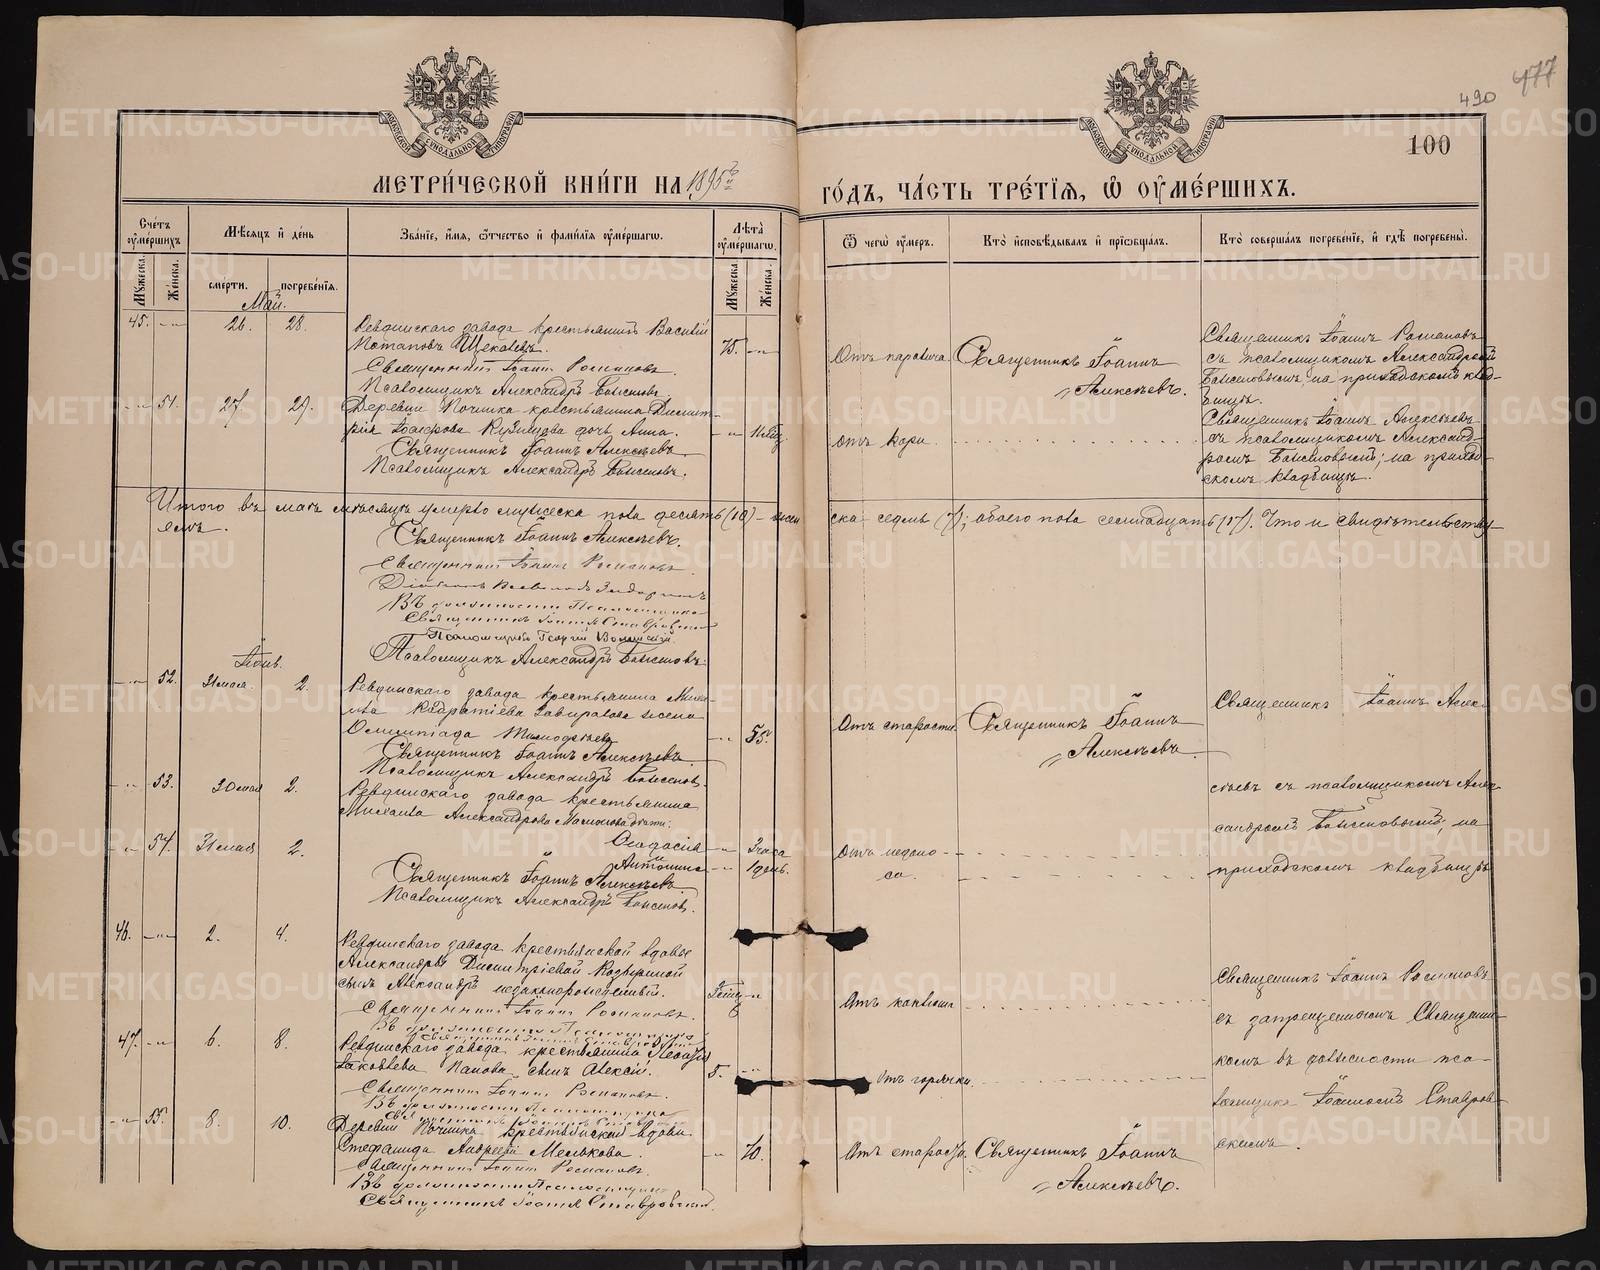 477
490
100
МОСКОВСКОЙ СѴНОДАЛЬНОЙ ТИПОГРАФІИ
МОСКОВСКОЙ СѴНОДАЛЬНОЙ ТИПОГРАФІИ
МЕТРИ́ЧЕСКОЙ КНИ́ГИ НА 1895й
ГО́ДЪ, ЧА́СТЬ ТРЕ́ТІЯ, Ѿ ОУМЕ́РШИХЪ.
Счетъ оумершихъ
Мужеска.
Женска.
Мѣсяцъ и день
смерти.
погребенія.
Званіе, имя, отчество и фамилія оумершагѡ.
Лѣта оумершагѡ.
Мужеска.
Женска.
Ѿ чегѡ оумеръ.
Кто исповѣдывалъ и пріѡбщалъ.
Кто совершалъ погребеніе, и гдѣ погребены.
Май.
45. 26. 28. Ревдинскаго завода крестьянинъ Василій
Потаповъ Щекалевъ. 75.
Священникъ Іоаннъ Романовъ.
Псаломщикъ Александръ
Отъ паралича
Священникъ Іоаннъ
Алексѣевъ.
Священникъ Іоаннъ Романовъ
съ псаломщикомъ Александромъ
на приходскомъ клад-
бищѣ.
51. 27. 29. Деревни Починка крестьянина Димит-
рія Кузнецова дочь Анна.
Священникъ Іоаннъ Алексѣевъ
Псаломщикъ Александръ
отъ кори
Священникъ Іоаннъ Алексѣевъ
съ псаломщикомъ Александ-
ромъ на приход-
скомъ кладбищѣ.
Итого въ маѣ мѣсяцѣ умерло мужеска пола десять (10) – женска – седмь (7); обоего пола семнадцать (17). Что и свидѣтельству-
емъ.
Священникъ Іоаннъ Алексѣевъ.
Священникъ Іоаннъ Романовъ
Діаконъ
Въ должности Псаломщика
Священникъ Іоаннъ Ставровскій
Псаломщикъ Георгій
Псаломщикъ Александръ
Іюнь.
52. 31 мая. 2. Ревдинскаго завода крестьянина
жена
Олимпіада Тимофеева 55.
Священникъ Іоаннъ Алексѣевъ
Псаломщикъ Александръ
Отъ старости.
Священникъ Іоаннъ
Алексѣевъ
Священникъ Іоаннъ Алек-
сѣевъ съ псаломщикомъ Алек-
сандромъ на
приходскомъ кладбищѣ
53. 30 мая 2. Ревдинскаго завода крестьянина
Михаила Александрова дѣти:
54. 31 мая 2.
3 часа
Антонина 1 день.
Священникъ Іоаннъ Алексѣевъ
Псаломщикъ Александръ
Отъ недоно-
са.
46. 2. 4. Ревдинскаго завода крестьянской вдовы
Александры Димитріевой
сынъ Александръ незаконнорожденный.
Священникъ Іоаннъ Романовъ.
Въ должности Псаломщика
Отъ коклюша
Священникъ Іоаннъ Романовъ
съ запрещеннымъ Священни-
комъ въ должности пса-
ломщика Іоанномъ Ставров-
скимъ.
47. 6. 8. Ревдинскаго завода крестьянина
Яковлева Панова сынъ Алексій. 5.
Священникъ Іоаннъ Романовъ.
Въ должности Псаломщика
Отъ горячки
55. 8. 10. Деревни Починка крестьянская вдова
Стефанида Андреева Мелькова. 70.
Священникъ Іоаннъ Романовъ.
Въ должности Псаломщика
Священникъ Іоаннъ Ставровскій.
Отъ старости.
Священникъ Іоаннъ
Алексѣевъ.
METRIKI.GASO-URAL.RU